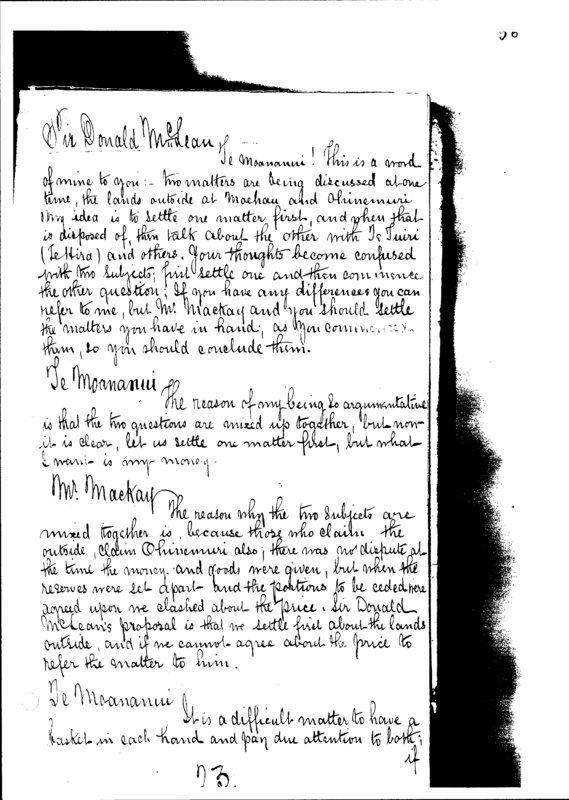 Sir Donald McLean
Te Moananui! This is a word
of mine to you:- two matters are being discussed at one
time, the lands outside at Moehau and Ohinemuri
My idea is to settle one matter first, and when that
is disposed of, then talk about the other with Te Tuiri
(Te Hira) and others. Your thoughts become confused
with two subjects, first settle one and then commence
the other question! If you have any differences you can
refer to me, but Mr. Mackay and you should settle
the matters you have in hand, as you commence
them, so you should conclude them.
Te Moananui
The reason of my being so argumentative
is that the two questions are mixed up together, but now
it is clear, let us settle one matter first, but what
I want is my money.
Mr. Mackay
The reason why the two subjects are
mixed together is, because those who claim the
outside, claim Ohinemuri also; there was no dispute at
the time the money and goods were given, but when the
reserves were set apart and the portions to be ceded were
agreed upon we clashed about the price. Sir Donald
McLean's proposal is that we settle first about the lands
outside, and if we cannot agree about the price to
refer the matter to him.
Te Moananui
It is a difficult matter to have a
basket in each hand and pay due attention to both;
if
73.